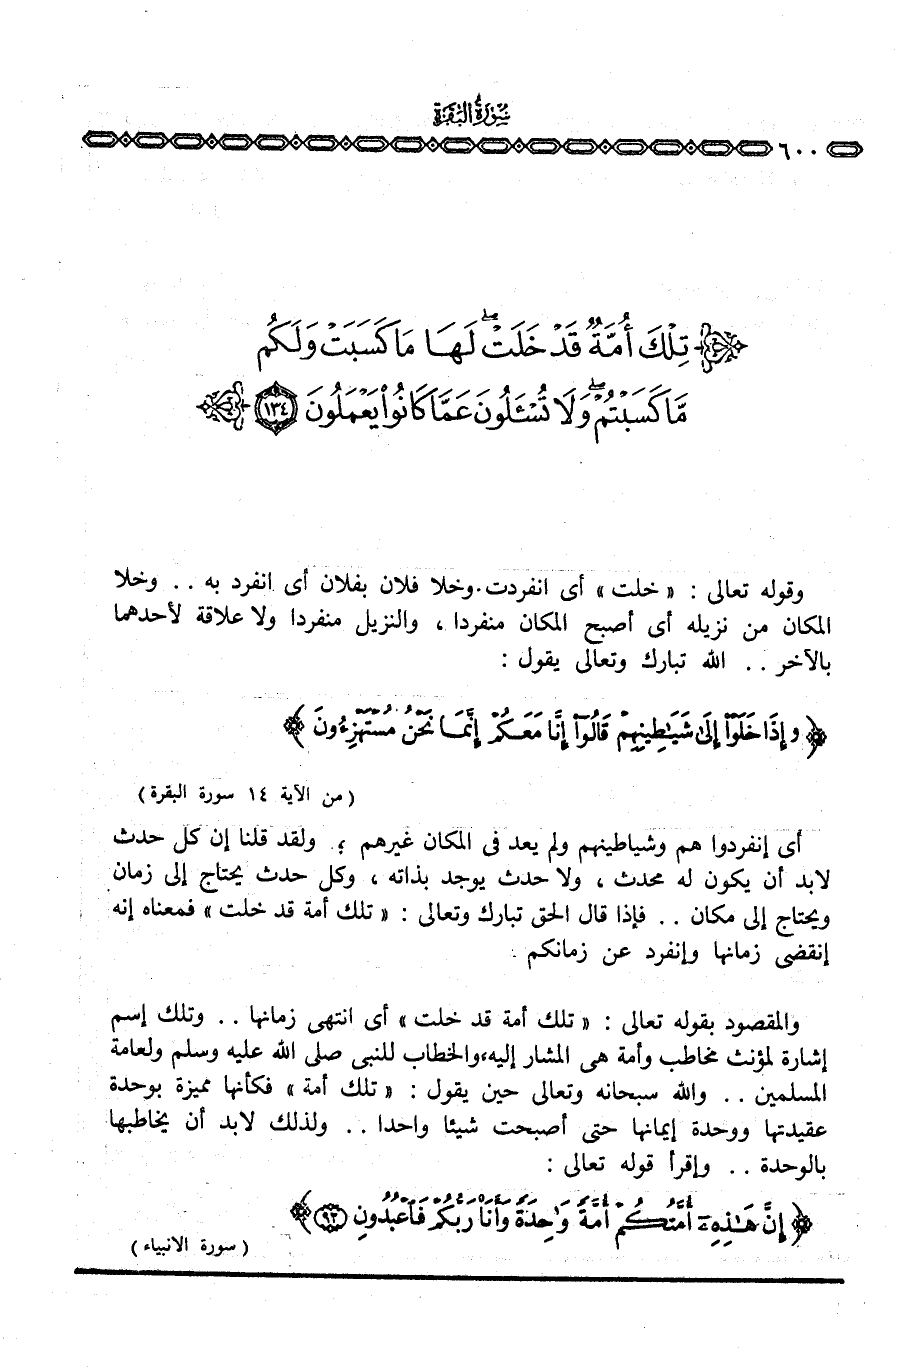 سورة البقرة
٦٠٠
تِلْكَ أُمَّةٌ قَدْ خَلَتْ ۖ لَهَا مَا كَسَبَتْ وَلَكُم
مَّا كَسَبْتُمْ ۖ وَلَا تُسْـَٔلُونَ عَمَّا كَانُوا۟ يَعْمَلُونَ ١٣٤
وقوله تعالى : « خلت » أى انفردت . وخلا فلان بفلان أى انفرد به . . وخلا
المكان من نزيله أى أصبح المكان منفردا ، والنزيل منفردا ولا علاقة لأحدهما
بالآخر . . الله تبارك وتعالى يقول :
﴿ وَإِذَا خَلَوْا۟ إِلَىٰ شَيَـٰطِينِهِمْ قَالُوٓا۟ إِنَّا مَعَكُمْ إِنَّمَا نَحْنُ مُسْتَهْزِءُونَ ﴾
( من الآية ١٤ سورة البقرة )
أى إنفردوا هم وشياطينهم ولم يعد فى المكان غيرهم ؛ ولقد قلنا إن كل حدث
لابد أن يكون له محدث ، ولا حدث يوجد بذاته ، وكل حدث يحتاج إلى زمان
ويحتاج إلى مكان . . فإذا قال الحق تبارك وتعالى : « تلك أمة قد خلت » فمعناه إنه
إنقضى زمانها وإنفرد عن زمانكم .
والمقصود بقوله تعالى : « تلك أمة قد خلت » أى انتهى زمانها . . وتلك إسم
إشارة لمؤنث مخاطب وأمة هى المشار إليه ، والخطاب للنبى صلى الله عليه وسلم ولعامة
المسلمين . . والله سبحانه وتعالى حين يقول : « تلك أمة » فكأنها مميزة بوحدة
عقيدتها ووحدة إيمانها حتى أصبحت شيئا واحدا . . ولذلك لابد أن يخاطبها
بالوحدة . . وإقرأ قوله تعالى :
﴿ إِنَّ هَـٰذِهِۦٓ أُمَّتُكُمْ أُمَّةً وَٰحِدَةً وَأَنَا۠ رَبُّكُمْ فَٱعْبُدُونِ ٩٢ ﴾
( سورة الانبياء )